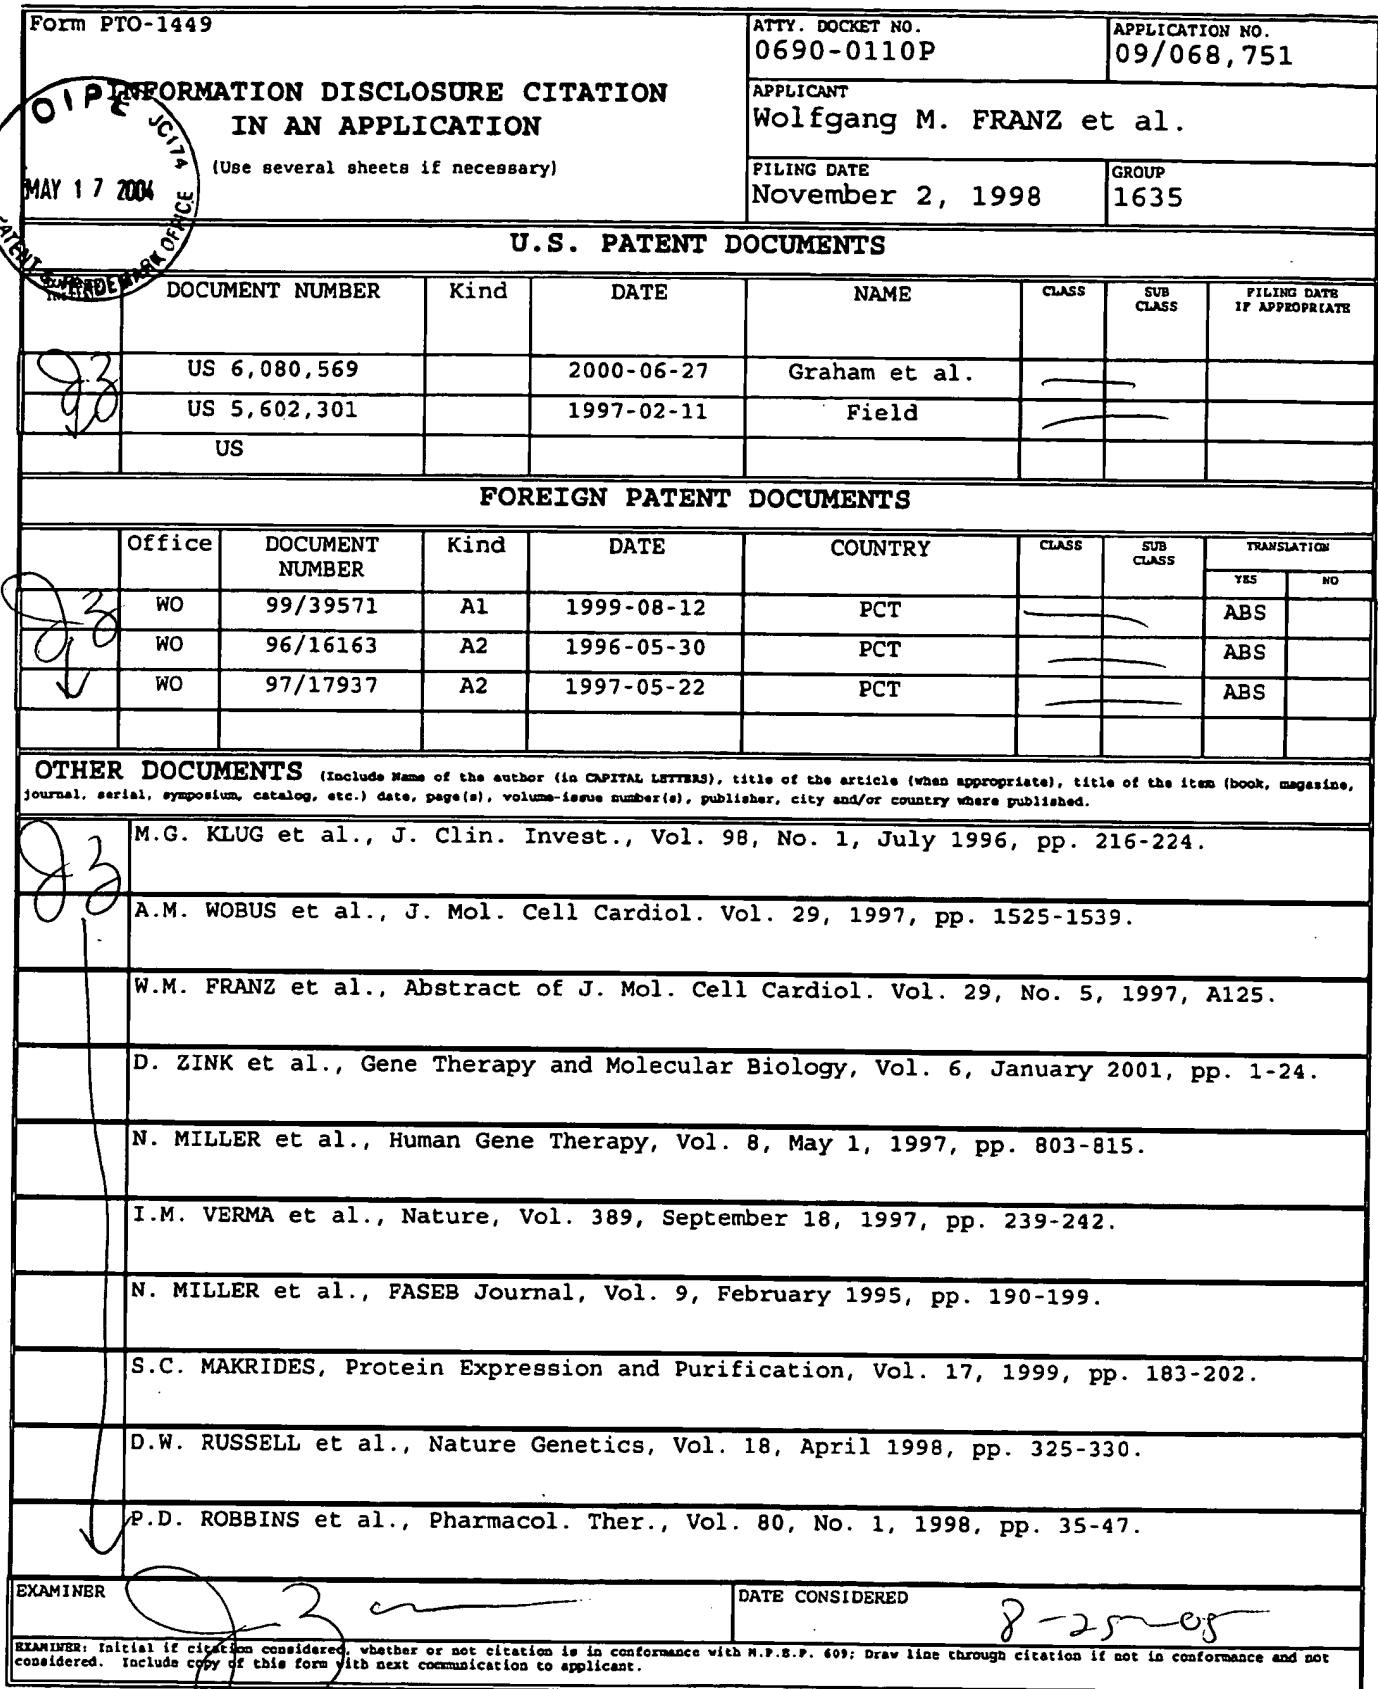 Form PTO-1449
ATTY. DOCKET NO.
0690-0110P
APPLICATION NO.
09/068,751
INFORMATION DISCLOSURE CITATION
IN AN APPLICATION
(Use several sheets if necessary)
APPLICANT
Wolfgang M. FRANZ et al.
FILING DATE
November 2, 1998
GROUP
1635
OIPE JC174
MAY 17 2004
PATENT & TRADEMARK OFFICE
U.S. PATENT DOCUMENTS
DOCUMENT NUMBER Kind DATE NAME CLASS SUB CLASS FILING DATE IF APPROPRIATE
US 6,080,569 2000-06-27 Graham et al.
US 5,602,301 1997-02-11 Field
US
FOREIGN PATENT DOCUMENTS
Office DOCUMENT NUMBER Kind DATE COUNTRY CLASS SUB CLASS TRANSLATION
YES NO
WO 99/39571 A1 1999-08-12 PCT ABS
WO 96/16163 A2 1996-05-30 PCT ABS
WO 97/17937 A2 1997-05-22 PCT ABS
OTHER DOCUMENTS (Include Name of the author (in CAPITAL LETTERS), title of the article (when appropriate), title of the item (book, magazine,
journal, serial, symposium, catalog, etc.) date, page(s), volume-issue number(s), publisher, city and/or country where published.
M.G. KLUG et al., J. Clin. Invest., Vol. 98, No. 1, July 1996, pp. 216-224.
A.M. WOBUS et al., J. Mol. Cell Cardiol. Vol. 29, 1997, pp. 1525-1539.
W.M. FRANZ et al., Abstract of J. Mol. Cell Cardiol. Vol. 29, No. 5, 1997, A125.
D. ZINK et al., Gene Therapy and Molecular Biology, Vol. 6, January 2001, pp. 1-24.
N. MILLER et al., Human Gene Therapy, Vol. 8, May 1, 1997, pp. 803-815.
I.M. VERMA et al., Nature, Vol. 389, September 18, 1997, pp. 239-242.
N. MILLER et al., FASEB Journal, Vol. 9, February 1995, pp. 190-199.
S.C. MAKRIDES, Protein Expression and Purification, Vol. 17, 1999, pp. 183-202.
D.W. RUSSELL et al., Nature Genetics, Vol. 18, April 1998, pp. 325-330.
P.D. ROBBINS et al., Pharmacol. Ther., Vol. 80, No. 1, 1998, pp. 35-47.
EXAMINER
DATE CONSIDERED
8-25-05
EXAMINER: Initial if citation considered, whether or not citation is in conformance with M.P.E.P. 609; Draw line through citation if not in conformance and not
considered. Include copy of this form with next communication to applicant.